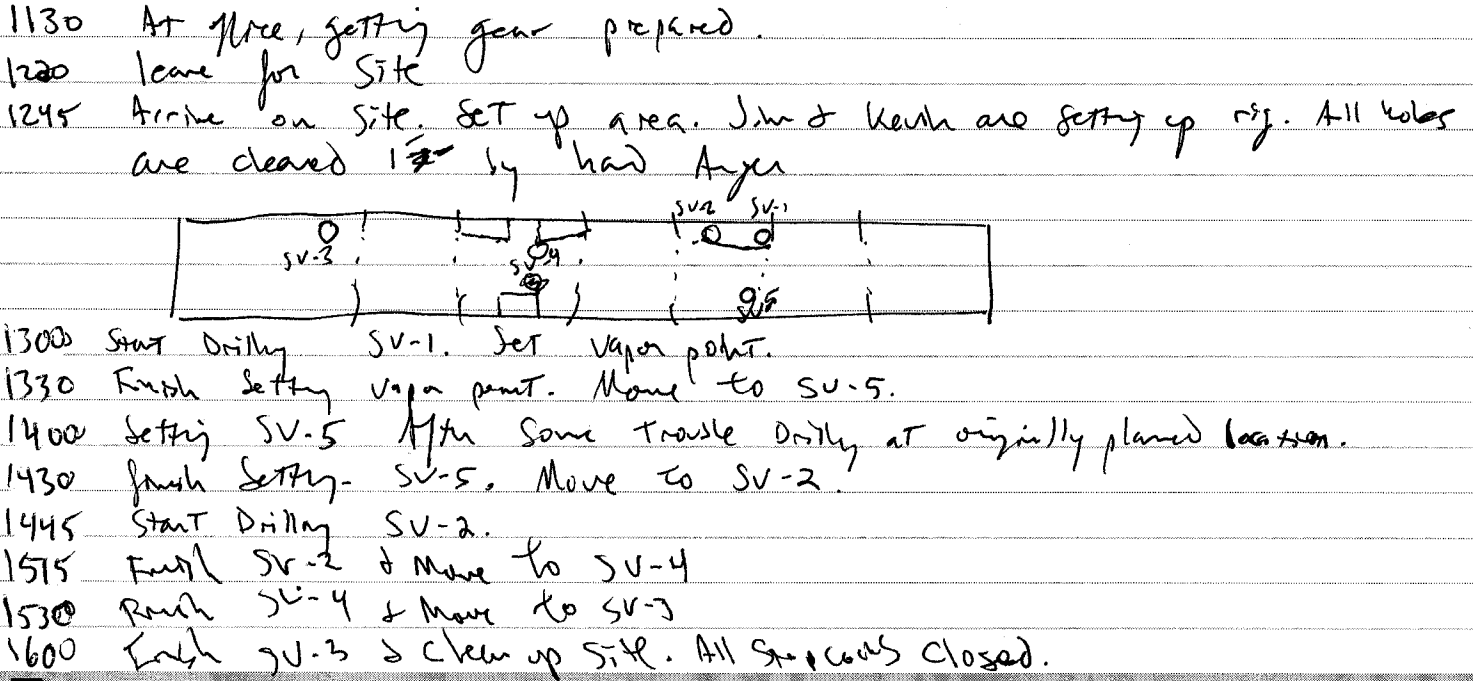 1130 At office, getting gear prepared.
1220 leave for Site
1245 Arrive on Site. Set up area. Jim & Kevin are setting up rig. All holes
are cleared by hand Auger
SV-2 SV-1
SV-3
SV-4
SV-5
1300 Start Drilling SV-1. Set Vapor point.
1330 Finish Setting vapor point. Move to SV-5.
1400 Setting SV-5 After Some Trouble Drilling at originally planned location.
1430 finish Setting SV-5. Move to SV-2.
1445 Start Drilling SV-2.
1515 Finish SV-2 & Move to SV-4
1530 Finish SV-4 & Move to SV-3
1600 Finish SV-3 & Clean up Site. All Stopcocks Closed.